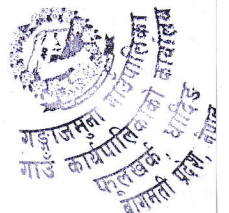 गङ्गाजमुना गाउँपालिका
गाउँ कार्यपालिकाको कार्यालय
फूलखर्क धादिङ
बागमती प्रदेश, नेपाल